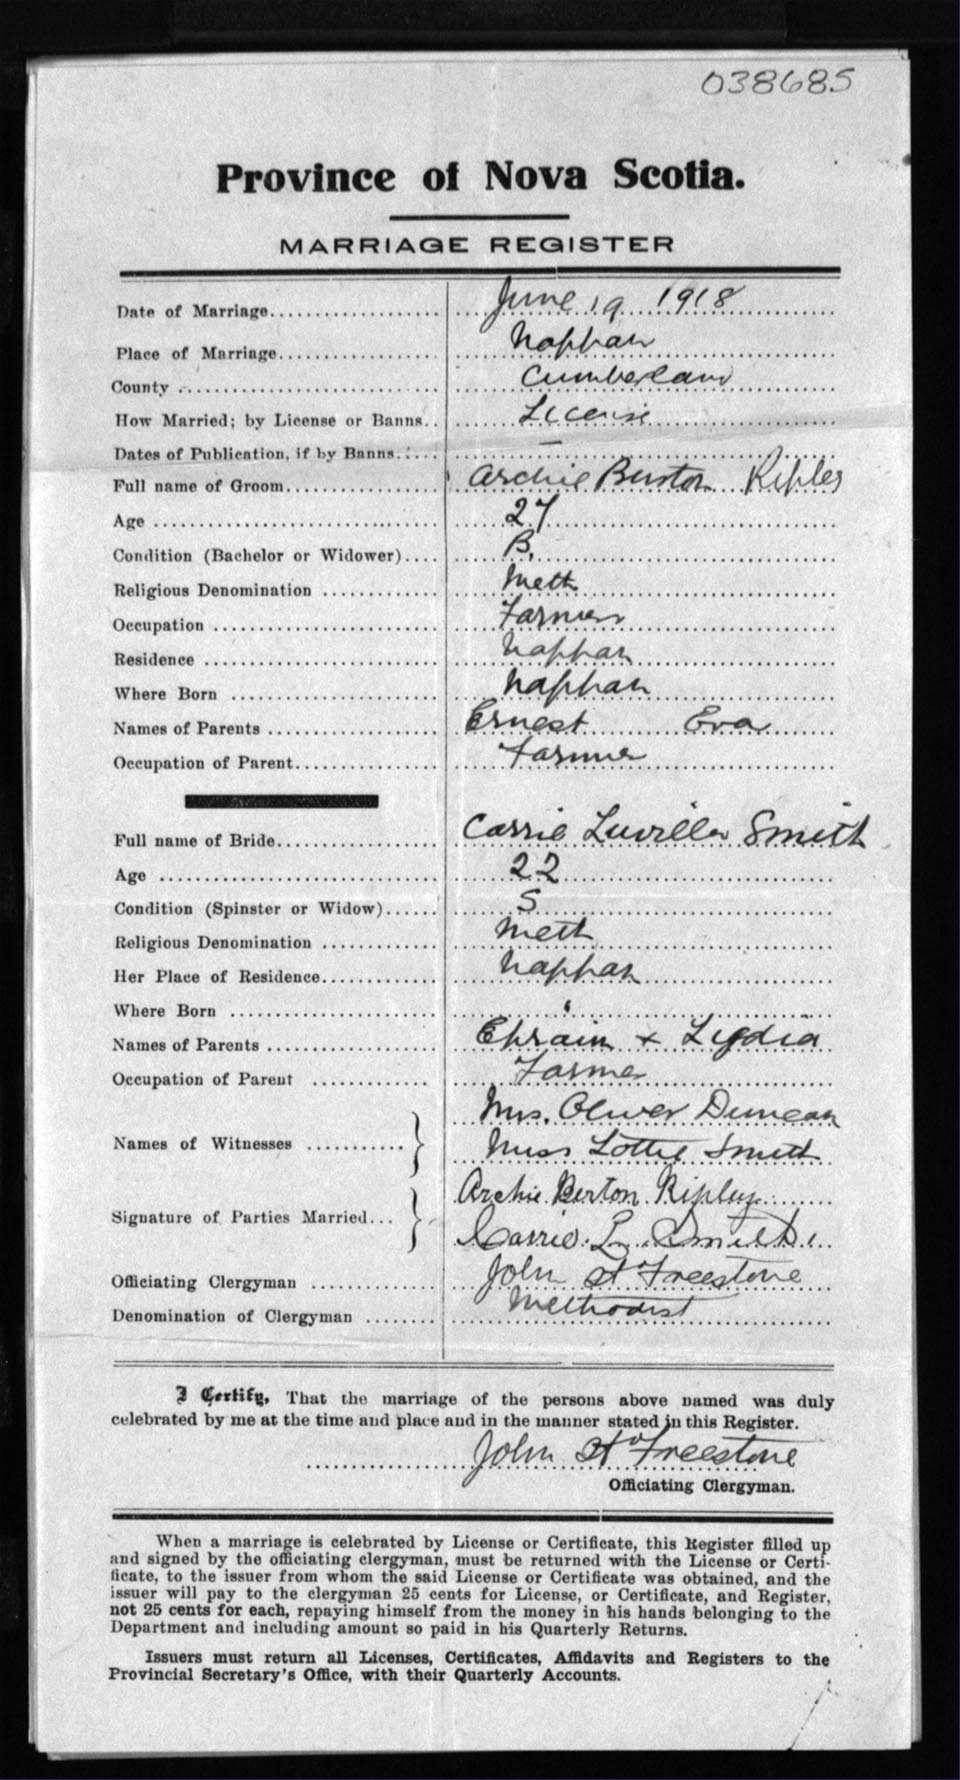 038685
Province of Nova Scotia.
MARRIAGE REGISTER
Date of Marriage.................... June 19 1918
Place of Marriage.................. Nappan
County ............................ Cumberland
How Married; by License or Banns.. License
Dates of Publication, if by Banns..... —
Full name of Groom.................. Archie Burton Ripley
Age .............................. 27
Condition (Bachelor or Widower).... B.
Religious Denomination ............ Meth
Occupation ........................ Farmer
Residence ......................... Nappan
Where Born ....................... Nappan
Names of Parents .................. Ernest Eva
Occupation of Parent............... Farmer
Full name of Bride.................. Carrie Luvilla Smith
Age .............................. 22
Condition (Spinster or Widow)...... S
Religious Denomination ............ Meth
Her Place of Residence............. Nappan
Where Born ....................... "
Names of Parents .................. Ephraim + Lydia
Occupation of Parent ............. Farmer
Mrs. Oliver Duncan
Names of Witnesses ...........} Miss Lottie Smith
Archie Berton Ripley
Signature of Parties Married... } Carrie L. Smith.
Officiating Clergyman ............. John H Freestone
Denomination of Clergyman ........ Methodist
I Certify, That the marriage of the persons above named was duly
celebrated by me at the time and place and in the manner stated in this Register.
John H Freestone
Officiating Clergyman.
When a marriage is celebrated by License or Certificate, this Register filled up
and signed by the officiating clergyman, must be returned with the License or Certi-
ficate, to the issuer from whom the said License or Certificate was obtained, and the
issuer will pay to the clergyman 25 cents for License, or Certificate, and Register,
not 25 cents for each, repaying himself from the money in his hands belonging to the
Department and including amount so paid in his Quarterly Returns.
Issuers must return all Licenses, Certificates, Affidavits and Registers to the
Provincial Secretary's Office, with their Quarterly Accounts.